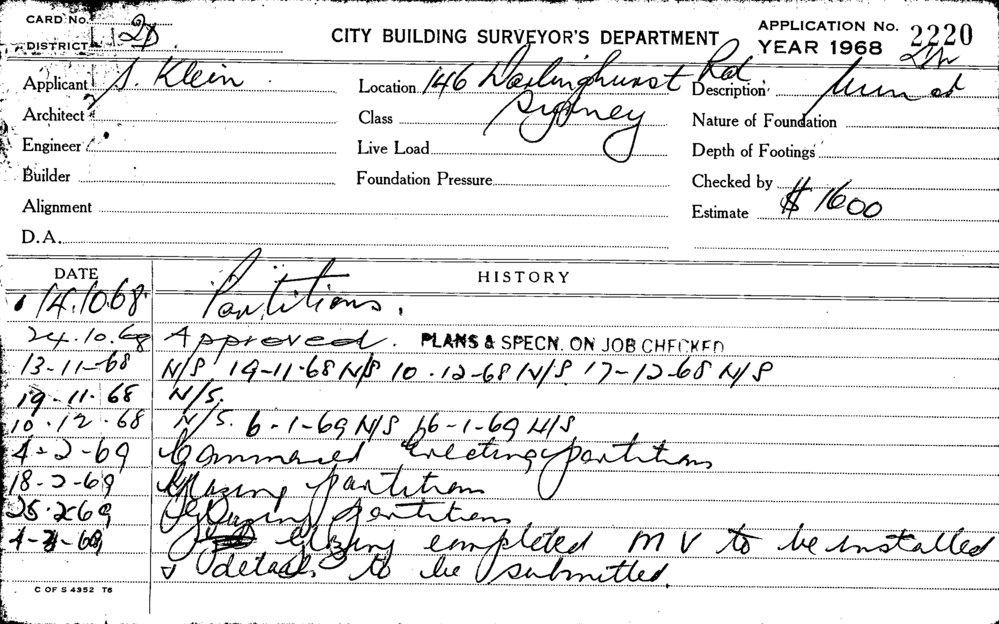 CARD No.
DISTRICT 2D.
CITY BUILDING SURVEYOR'S DEPARTMENT
APPLICATION No. 2220
YEAR 1968
Applicant S. Klein
Location 146 Darlinghurst Rd
Sydney
Description
Architect
Class
Nature of Foundation
Engineer
Live Load
Depth of Footings
Builder
Foundation Pressure
Checked by
Alignment
Estimate $1600
D.A.
DATE HISTORY
14.10.68 Partitions.
24.10.68 Approved. PLANS & SPECN. ON JOB CHECKED
13-11-68 N/S 19-11-68 N/S 10-12-68 N/S. 17-12-68 N/S
19-11-68 N/S.
10.12.68 N/S. 6-1-69 N/S 16-1-69 N/S
4-2-69 Commenced erecting partitions
18-2-69 Glazing partitions
25.2.69 Glazing partitions
4-3-69 glazing completed M V to be installed
& details to be submitted.
C OF S 4352 T6